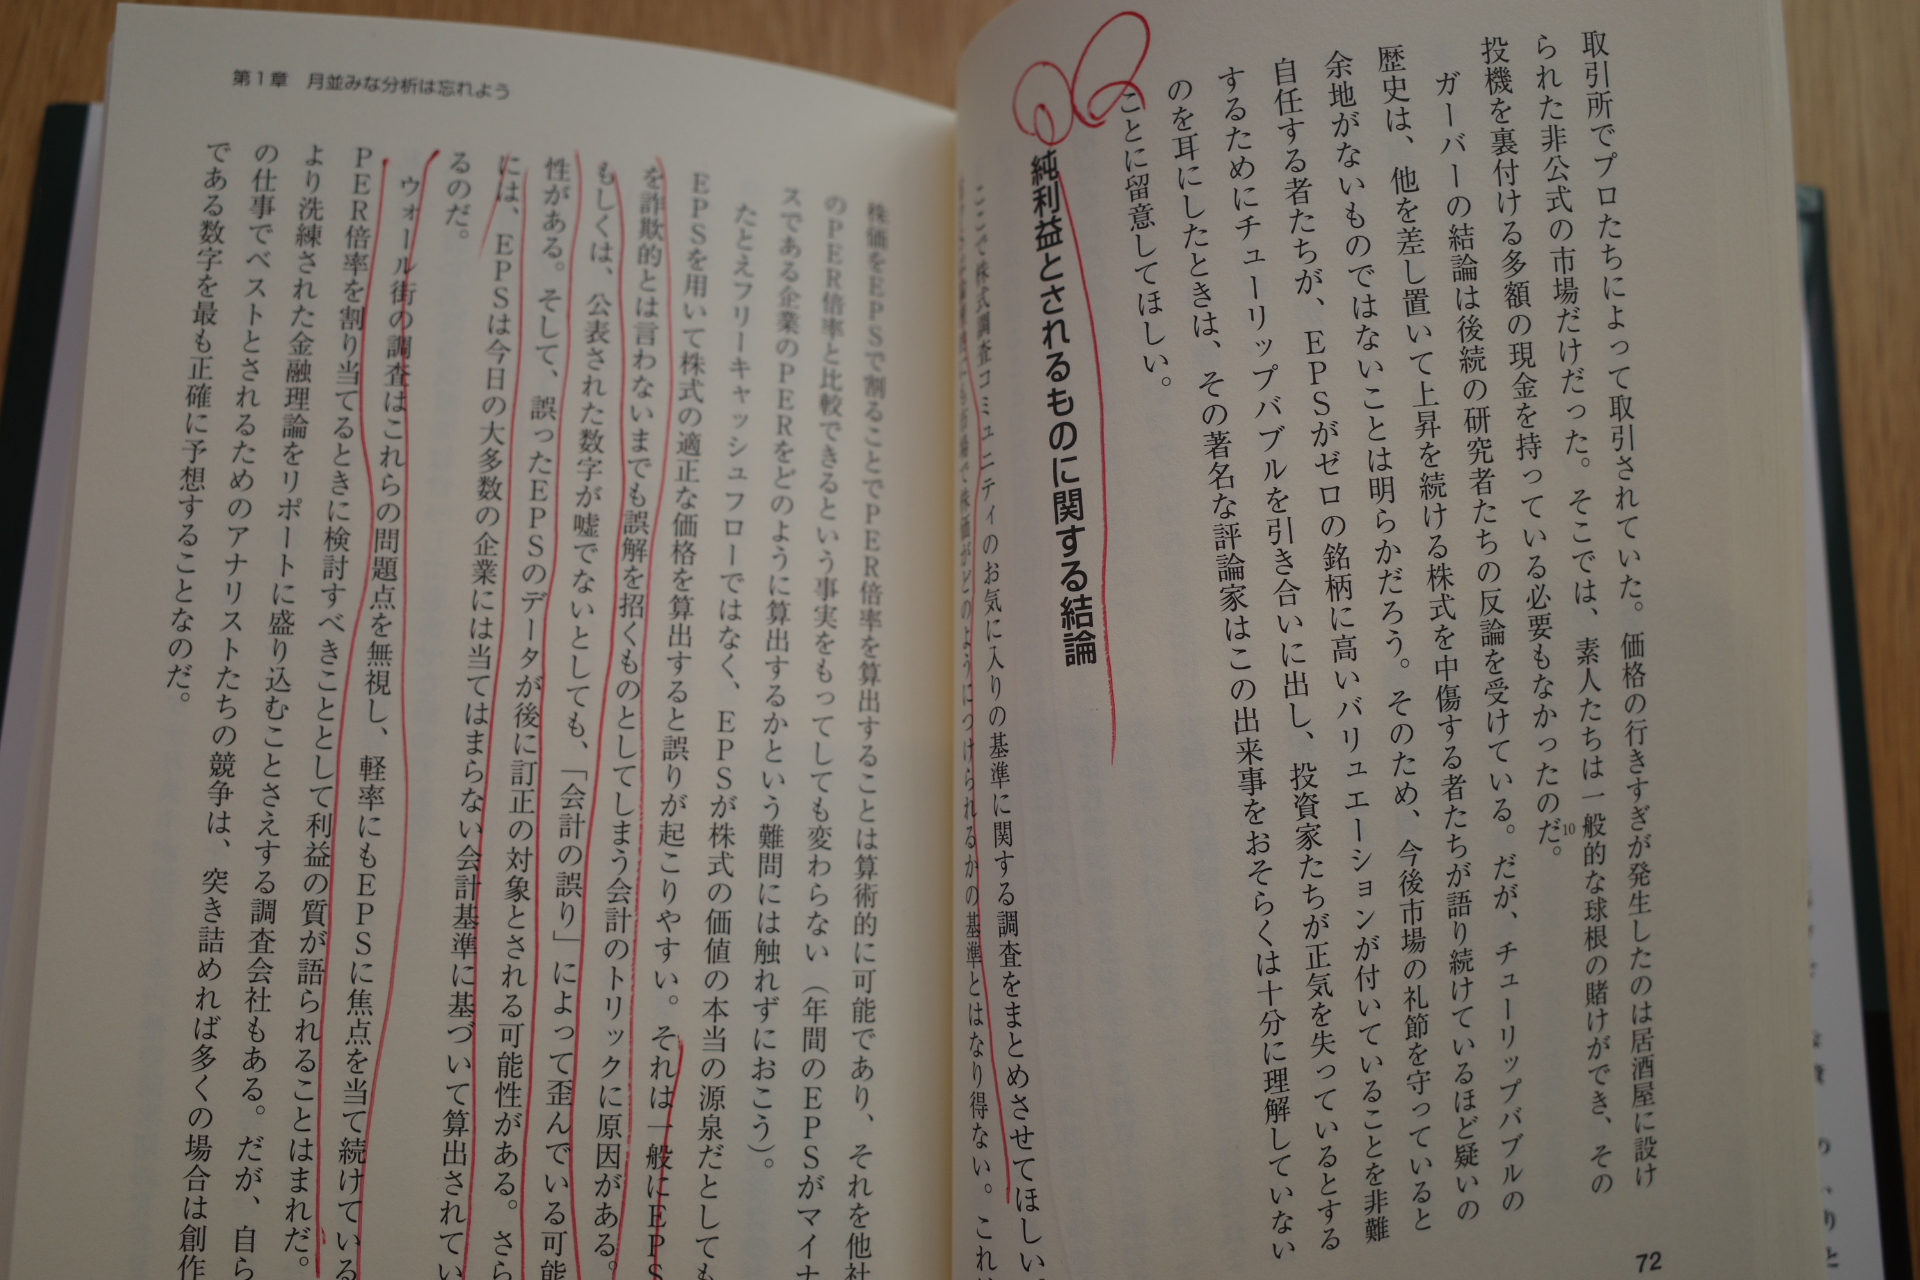 取引所でプロたちによって取引されていた。価格の行きすぎが発生したのは居酒屋に設け
られた非公式の市場だけだった。そこでは、素人たちは一般的な球根の賭けができ、その
投機を裏付ける多額の現金を持っている必要もなかったのだ。10
ガーバーの結論は後続の研究者たちの反論を受けている。だが、チューリップバブルの
歴史は、他を差し置いて上昇を続ける株式を中傷する者たちが語り続けているほど疑いの
余地がないものではないことは明らかだろう。そのため、今後市場の礼節を守っていると
自任する者たちが、EPSがゼロの銘柄に高いバリュエーションが付いていることを非難
するためにチューリップバブルを引き合いに出し、投資家たちが正気を失っているとする
のを耳にしたときは、その著名な評論家はこの出来事をおそらくは十分に理解していない
ことに留意してほしい。
純利益とされるものに関する結論
ここで株式調査コミュニティのお気に入りの基準に関する調査をまとめさせてほしい。
株価がどのようにつけられるかの基準とはなり得ない。これ
72
第1章 月並みな分析は忘れよう
株価をEPSで割ることでPER倍率を算出することは算術的に可能であり、それを他社
のPER倍率と比較できるという事実をもってしても変わらない（年間のEPSがマイナ
スである企業のPERをどのように算出するかという難問には触れずにおこう）。
たとえフリーキャッシュフローではなく、EPSが株式の価値の本当の源泉だとしても
EPSを用いて株式の適正な価格を算出すると誤りが起こりやすい。それは一般にEPS
を詐欺的とは言わないまでも誤解を招くものとしてしまう会計のトリックに原因がある。
もしくは、公表された数字が嘘でないとしても、「会計の誤り」によって歪んでいる可能
性がある。そして、誤ったEPSのデータが後に訂正の対象とされる可能性がある。さら
には、EPSは今日の大多数の企業には当てはまらない会計基準に基づいて算出されてい
るのだ。
ウォール街の調査はこれらの問題点を無視し、軽率にもEPSに焦点を当て続けている
PER倍率を割り当てるときに検討すべきこととして利益の質が語られることはまれだ。
より洗練された金融理論をリポートに盛り込むことさえする調査会社もある。だが、自ら
の仕事でベストとされるためのアナリストたちの競争は、突き詰めれば多くの場合は創作
である数字を最も正確に予想することなのだ。